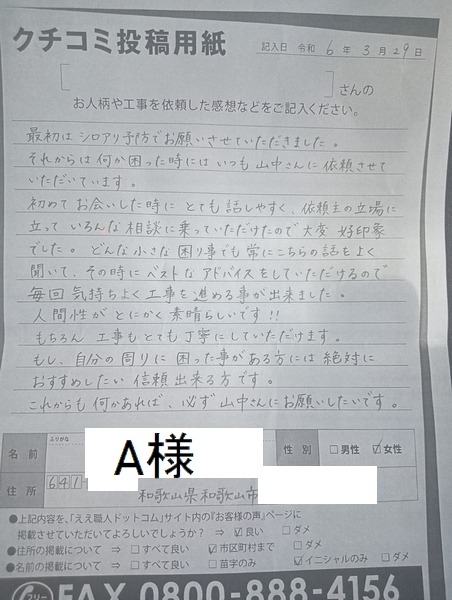 クチコミ投稿用紙
記入日 令和 6 年 3 月 29 日
さんの
お人柄や工事を依頼した感想などをご記入ください。
最初は シロアリ予防でお願いさせていただきました。
それからは 何か困った時には いつも 山中さんに 依頼させて
いただいています。
初めて お会いした時に とても 話しやすく、依頼主の立場に
立って いろんな 相談に 乗っていただけたので 大変 好印象
でした。 どんな 小さな 困り事でも 常に こちらの 話を よく
聞いて、その時に ベストな アドバイスを していただけるので
毎回 気持ちよく 工事を 進める事が 出来ました。
人間性が とにかく 素晴らしいです!!
もちろん 工事も とても 丁寧に していただけます。
もし、自分の 周りに 困った事が ある方には 絶対に
おすすめしたい 信頼 出来る方です。
これからも 何かあれば、必ず 山中さんに お願いしたいです。
ふりがな
名前 A様 性別 □男性 ☑女性
住所 641 和歌山県和歌山市
●上記内容を、「ええ職人ドットコム」サイト内の『お客様の声』ページに
掲載させていただいてよろしいでしょうか? ⇒ ☑良い □ダメ
●住所の掲載について ⇒ □すべて良い ☑市区町村まで □ダメ
●名前の掲載について ⇒ □すべて良い □苗字のみ ☑イニシャルのみ □ダメ
フリー FAX 0800-888-4156